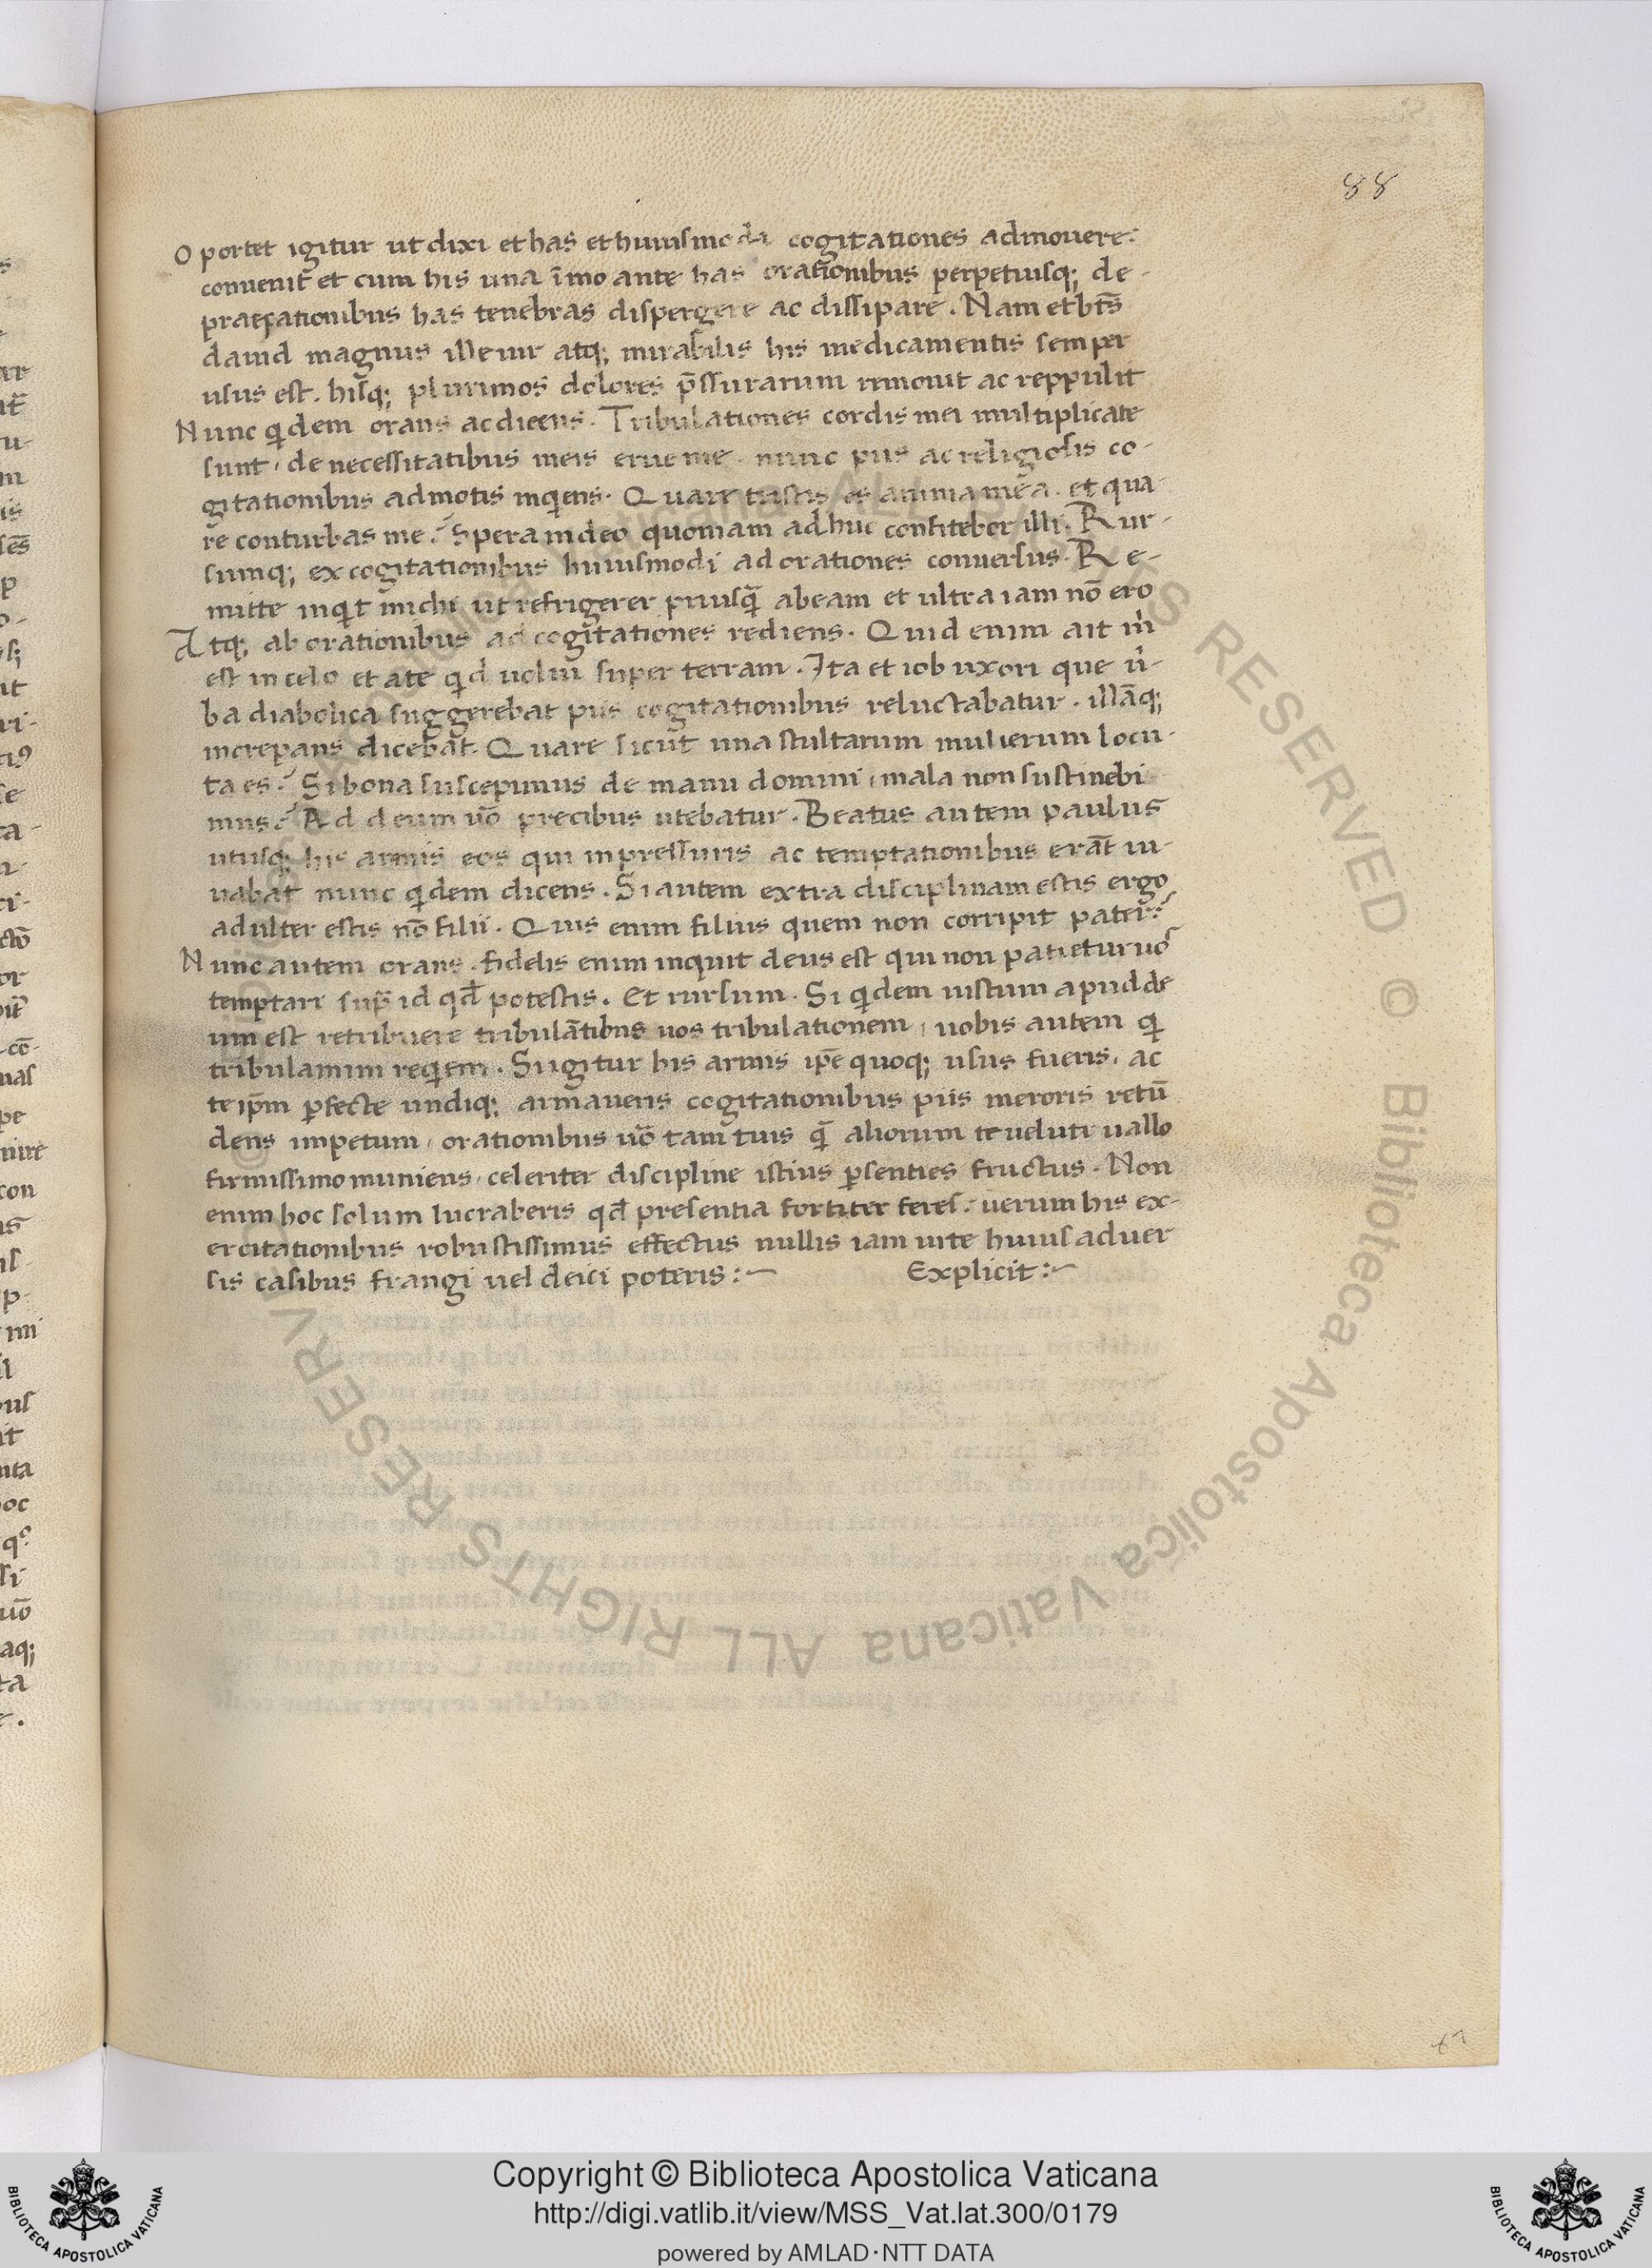 88
Oportet igitur ut dixi et has et huiusmodi cogitationes admouere:
conuenit et cum his una īmo ante has orationibus perpetuisq; de-
praecationibus has tenebras dispergere ac dissipare. Nam et bt̄s
dauid magnus ille uir atq; mirabilis his medicamentis semper
usus est. hisq; plurimos dolores p̄ssurarum remouit ac reppulit
Nunc qidem orans ac dicens. Tribulationes cordis mei multiplicate
sunt, de necessitatibus meis erue me. nunc piis ac religiosis co-
gitationibus admotis inqiens. Quare tristis es anima mea. et qua-
re conturbas me? Spera in deo quoniam adhuc confitebor illi. Rur-
sumq; ex cogitationibus huiusmodi ad orationes conuersus. Re-
mitte inqit michi ut refrigerer priusq̄ abeam et ultra iam nō ero
Atq; ab orationibus ad cogitationes rediens. Quid enim ait m̄
est in celo et a te qid uolui super terram. Ita et iob uxori que u̇-
ba diabolica suggerebat piis cogitationibus reluctabatur. illāq;
increpans dicebat. Quare sicut una stultarum mulierum locu-
ta es? Si bona suscepimus de manu domini, mala non sustinebi
mus? Ad deum uō precibus utebatur. Beatus autem paulus
utrisq; his armis eos qui in pressuris ac temptationibus erāt iu-
uabat nunc qidem dicens. Si autem extra disciplinam estis ergo
adulteri estis nō filii. Quis enim filius quem non corripit pater?
Nunc autem orans. fidelis enim inquit deus est qui non patietur uos
temptari sup̄ id qd̄ potestis. Et rursum. Si qidem iustum apud de
um est retribuere tribulātibus uos tribulationem, uobis autem qi
tribulamini reqiem. Si igitur his armis ip̄e quoq; usus fueris, ac
te ip̄m perfecte undiq; armaueris cogitationibus piis meroris retū
dens impetum, orationibus uō tam tuis q̄ aliorum te ueluti uallo
firmissimo muniens, celeriter discipline istius persenties fructus. Non
enim hoc solum lucraberis qd̄ presentia fortiter feres: uerum his ex-
ercitationibus robustissimus effectus nullis iam uite huius aduer
sis casibus frangi uel deici poteris:~ Explicit:~
Copyright © Biblioteca Apostolica Vaticana
http://digi.vatlib.it/view/MSS_Vat.lat.300/0179
powered by AMLAD·NTT DATA
BIBLIOTECA APOSTOLICA VATICANA
BIBLIOTECA APOSTOLICA VATICANA